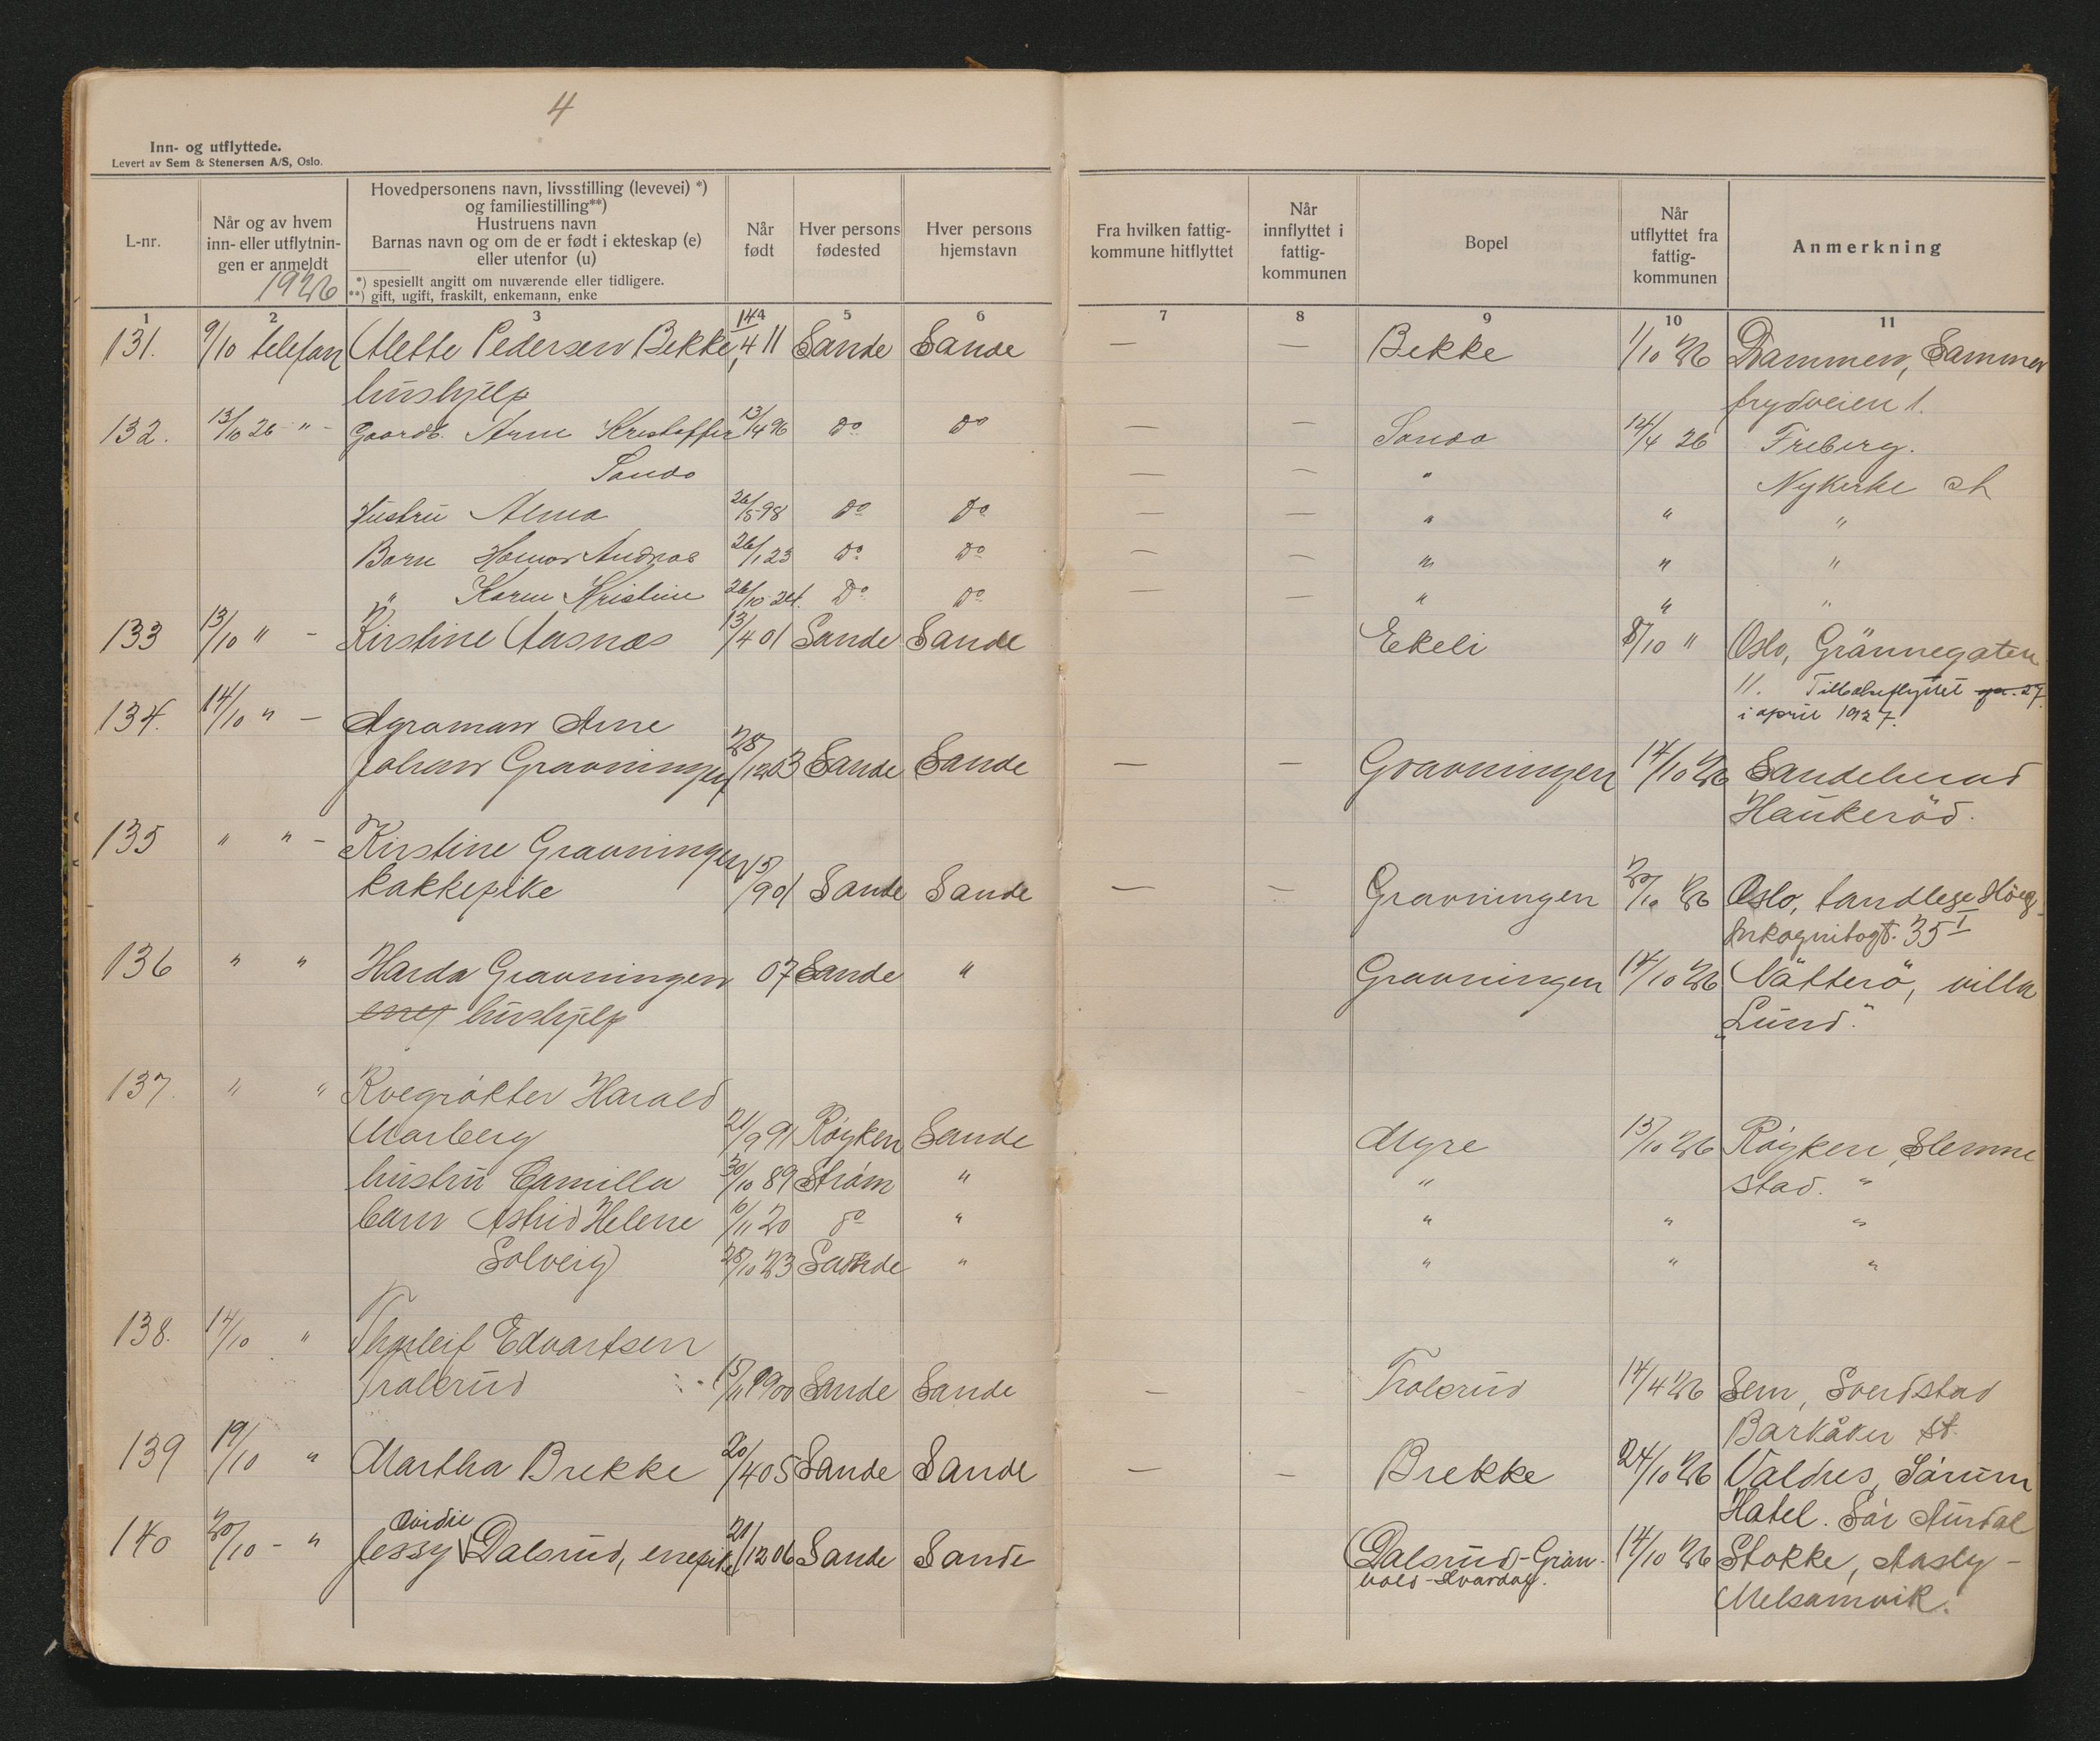 4
Inn- og utflyttede.
Levert av Sem & Stenersen A/S, Oslo.
L-nr.
Når og av hvem
inn- eller utflytnin-
gen er anmeldt
1926
Hovedpersonens navn, livsstilling (levevei) *)
og familiestilling**)
Hustruens navn
Barnas navn og om de er født i ekteskap (e)
eller utenfor (u)
*) spesiellt angitt om nuværende eller tidligere.
**) gift, ugift, fraskilt, enkemann, enke
Når
født
Hver persons
fødested
Hver persons
hjemstavn
Fra hvilken fattig-
kommune hitflyttet
Når
innflyttet i
fattig-
kommunen
Bopel
Når
utflyttet fra
fattig-
kommunen
Anmerkning
1 2 3 5 6 7 8 9 10 11
131. 9/10 telefon Alette Pedersen Bekke, 14/4 11 Sande Sande — — Bekke 1/10 26 Drammen, Sommer
hushjelp frydveien 1.
132. 13/10 26 " - Gaardb. Arne Kristoffer 13/4 96 do do — — Sando 14/4 26 Freberg.
Sando — — " Nykirke st
Hustru Alma 26/5 98 do do — — " " "
Barn Andreas 26/1 23 do do — — " " "
" Karen Kristine 26/10 24. Do do — — " " "
133 13/10 " - Kirstine Aasnæs 13/4 01 Sande Sande Ekeli 8/10 " Oslo, Grönnegaten
11. Tilbakeflyttet
i april 1927.
134. 14/10 " - Agronom Arne
Johan Gravningen 28/12 03 Sande Sande — — Gravningen 14/10 26 Sandeherad
Haukeröd.
135 " " - Kirstine Gravningen
kokkepike 15/9 01 Sande Sande — — Gravningen 20/10 26 Oslo, tandlege Höeg
Inkognitogt. 35 I
136 " " Harda Gravningen 07 Sande " Gravningen 14/10 26 Nötterö, villa
hushjelp "Lund".
137. " " Kvegrøkter Harald
Marberg 21/9 91 Røyken Sande Myre 15/10 26 Røyken, Slemme
hustru Camilla 30/10 89 Strøm " " stad. "
barn Astrid Helene 10/11 20 do " " " "
Solveig 28/10 23 Sande " " " "
138. 14/10 " Thorleif Edvartsen
Trolerud 15/11 1900 Sande Sande — — Trolerud 14/4 26 Sem, Sverdstad
Barkåker st.
139 19/10 " Martha Brekke 20/4 05 Sande Sande — — Brekke 24/10 26 Valdres, Sørum
Hotel. Sør Aurdal
140 20/10 - " Jessy Ovidie Dalsrud, enepike 21/12 06 Sande Sande Dalsrud-Grøn- 14/10 26 Stokke, Aasly -
vold - Melsomvik.